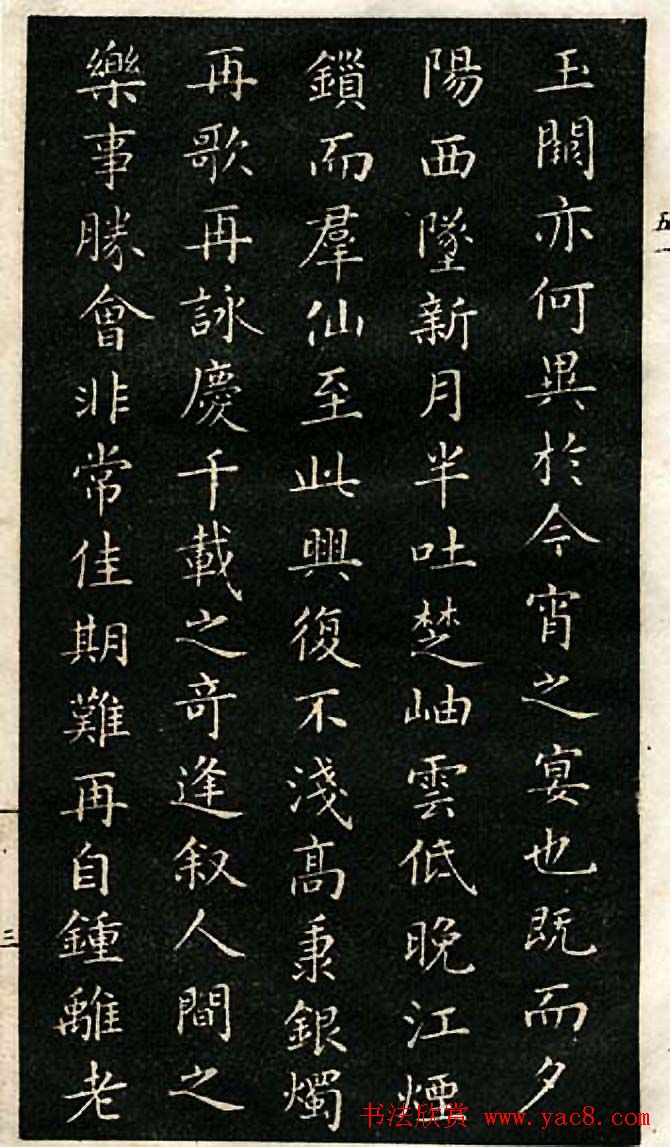 玉闕亦何異於今宵之宴也既而夕
陽西墜新月半吐楚岫雲低晚江煙
鎖而羣仙至此興復不淺高秉銀燭
再歌再詠慶千載之奇逢叙人間之
樂事勝會非常佳期難再自鍾離老
五
三
书法欣赏 www.yac8.com